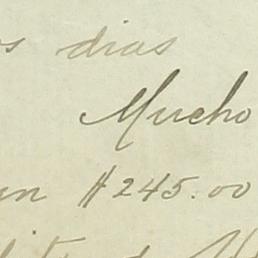 os dias
Mucho
un $245.00